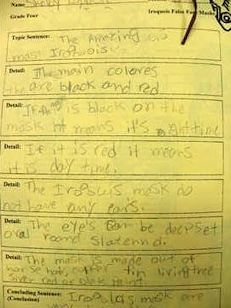 Name:
Grade Four Iroquois False Face Masks
Topic Sentence: The Amazing
mask Iroquois
Detail: The main colores
are black and red
Detail: If is black on the
mask it means it's night time
Detail: If it is red it means
it is day time.
Detail: The Iroquois mask do
not have any ears.
Detail: The eye's can be deepset
oval round
Detail: The mask is made out of
horse hair, copper tin living tree
red or black paint
Concluding Sentence: Iroquois mask are
(Conclusion)